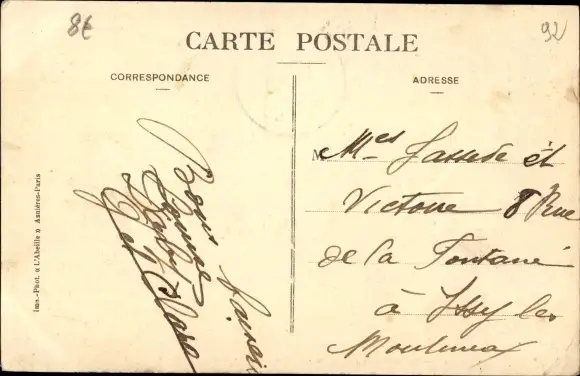 8€
92
CARTE POSTALE
CORRESPONDANCE
ADRESSE
Imp.-Phot. « L'Abeille » Asnières-Paris
Bons
G et Clara
Mes Lassede et
Victoire 8 Rue
de la Fontaine
à Issy les
Moulineaux